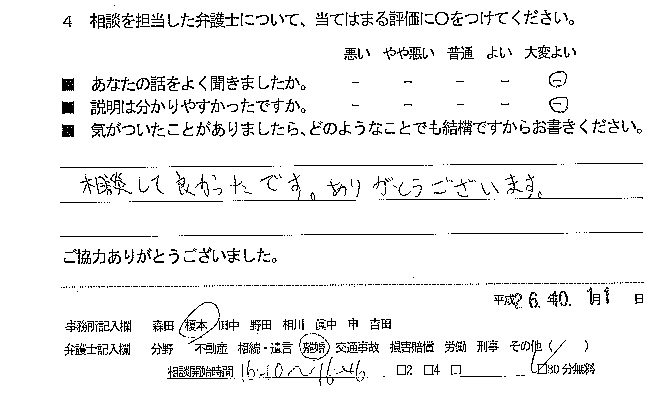 4 相談を担当した弁護士について、当てはまる評価に○をつけてください。
悪い やや悪い 普通 よい 大変よい
■ あなたの話をよく聞きましたか。 - - - - -
■ 説明は分かりやすかったですか。 - - - - -
■ 気がついたことがありましたら、どのようなことでも結構ですからお書きください。
相談して良かったです。ありがとうございます。
ご協力ありがとうございました。
平成26. 日
事務所記入欄 森田 榎本 田中 野田 相川 申 吉田
弁護士記入欄 分野 不動産 相続・遺言 離婚 交通事故 損害賠償 労働 刑事 その他( )
相談開始時間 16:10～16:46 □2 □4 □ □30分無料